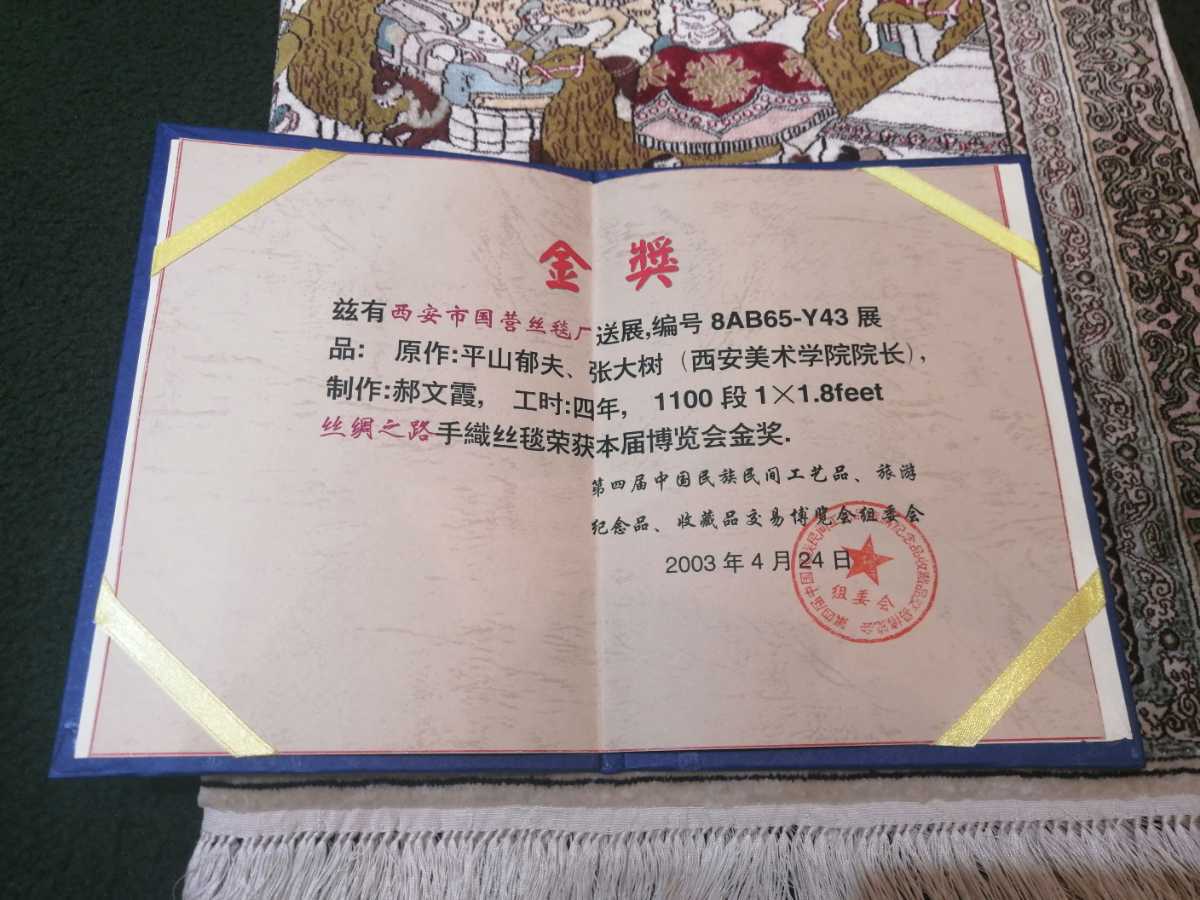 金獎
兹有西安市国营丝毯厂送展,编号 8AB65-Y43 展
品: 原作:平山郁夫、张大树(西安美术学院院长),
制作:郝文霞, 工时:四年, 1100 段 1×1.8feet
丝绸之路手織丝毯荣获本届博览会金奖.
第四届中国民族民间工艺品、旅游
纪念品、收藏品交易博览会组委会
2003 年 4 月 24 日
组委会